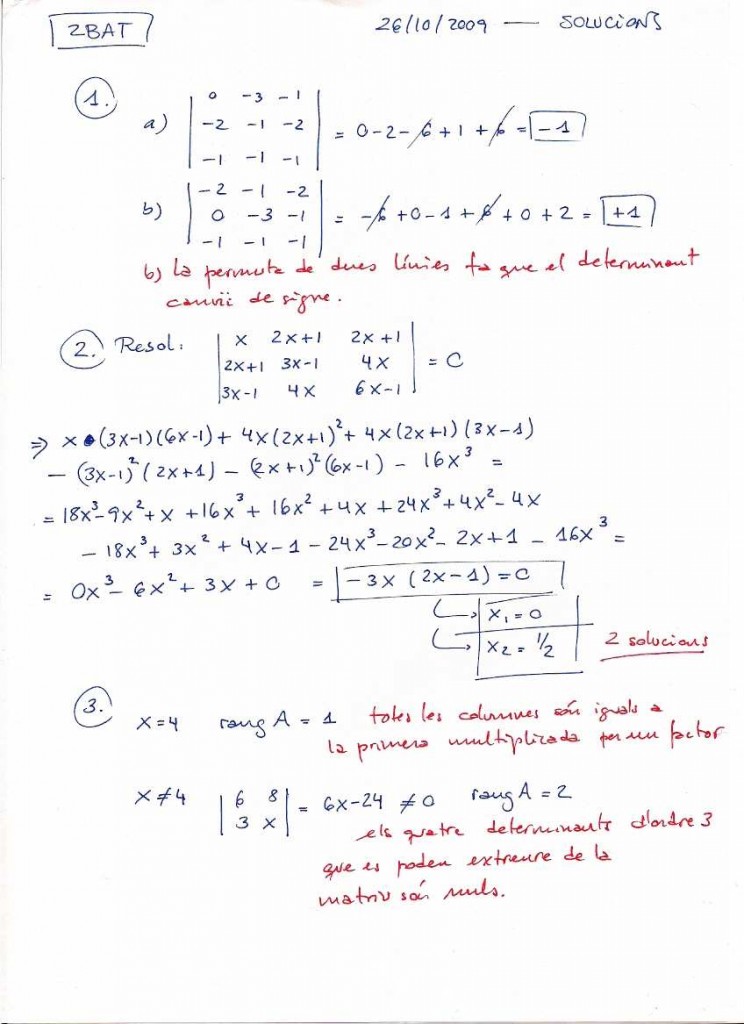 2BAT 26/10/2009 — SOLUCIONS
1.
a) | 0 -3 -1 |
| -2 -1 -2 | = 0-2-6+1+6 = -1
| -1 -1 -1 |
b) | -2 -1 -2 |
| 0 -3 -1 | = -6+0-1+6+0+2 = +1
| -1 -1 -1 |
b) La permuta de dues línies fa que el determinant
canviï de signe.
2. Resol: | x 2x+1 2x+1 |
| 2x+1 3x-1 4x | = 0
| 3x-1 4x 6x-1 |
⇒ x•(3x-1)(6x-1) + 4x(2x+1)² + 4x(2x+1)(3x-1)
- (3x-1)²(2x+1) - (2x+1)²(6x-1) - 16x³ =
= 18x³-9x²+x +16x³+16x²+4x+24x³+4x²-4x
- 18x³+3x²+4x-1-24x³-20x²-2x+1-16x³ =
= 0x³-6x²+3x+0 = -3x(2x-1)=0
↳ x₁=0
↳ x₂=1/2 2 solucions
3. x=4 rang A = 1 totes les columnes són iguals a
la primera multiplizada per un factor
x≠4 | 6 8 | = 6x-24 ≠0 rang A = 2
| 3 x |
els quatre determinants d'ordre 3
que es poden extreure de la
matriu són nuls.